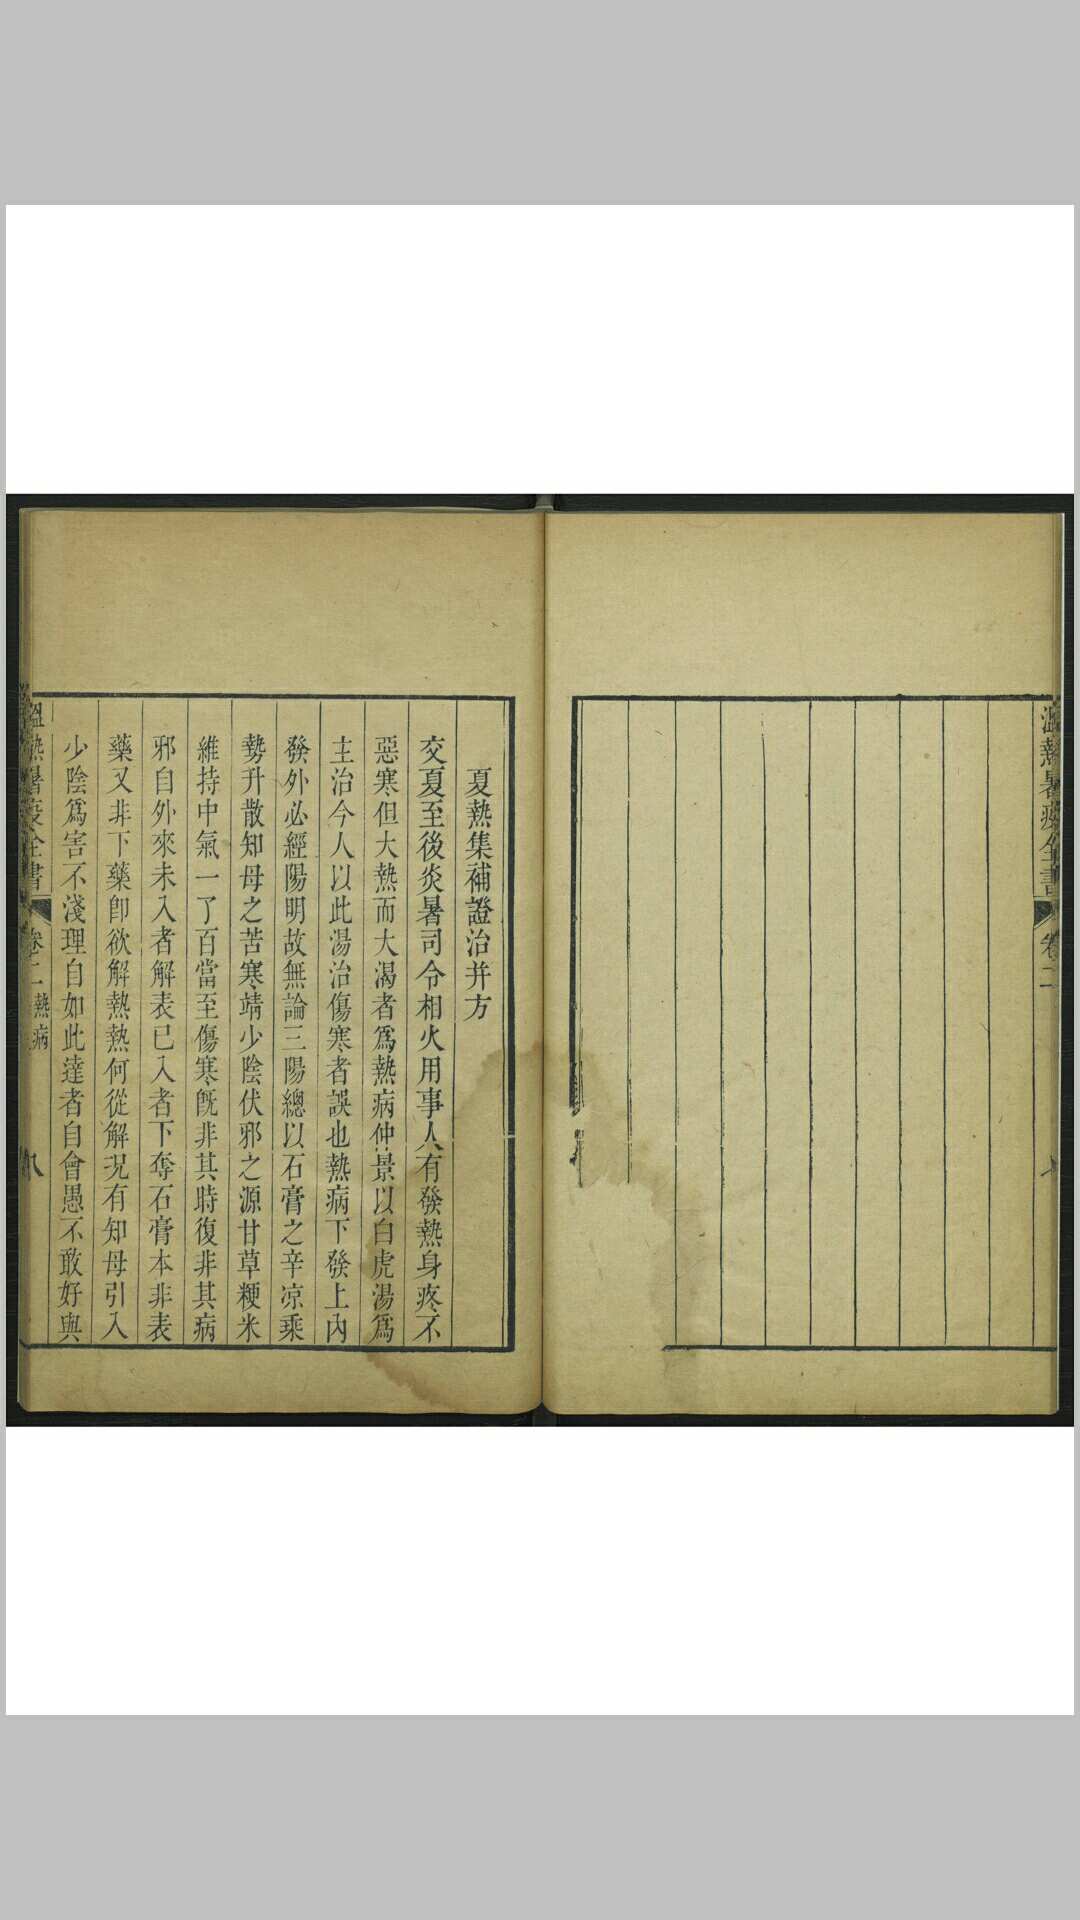 溫熱暑疫全書
卷二
夏熱集補證治并方
交夏至後炎暑司令相火用事人有發熱身疼不
惡寒但大熱而大渴者爲熱病仲景以白虎湯爲
主治今人以此湯治傷寒者誤也熱病下發上內
發外必經陽明故無論三陽總以石膏之辛凉乘
勢升散知母之苦寒靖少陰伏邪之源甘草粳米
維持中氣一了百當至傷寒旣非其時復非其病
邪自外來未入者解表已入者下奪石膏本非表
藥又非下藥卽欲解熱熱何從解況有知母引入
少陰爲害不淺理自如此達者自會愚不敢好與
溫熱暑疫全書
卷二 熱病
八